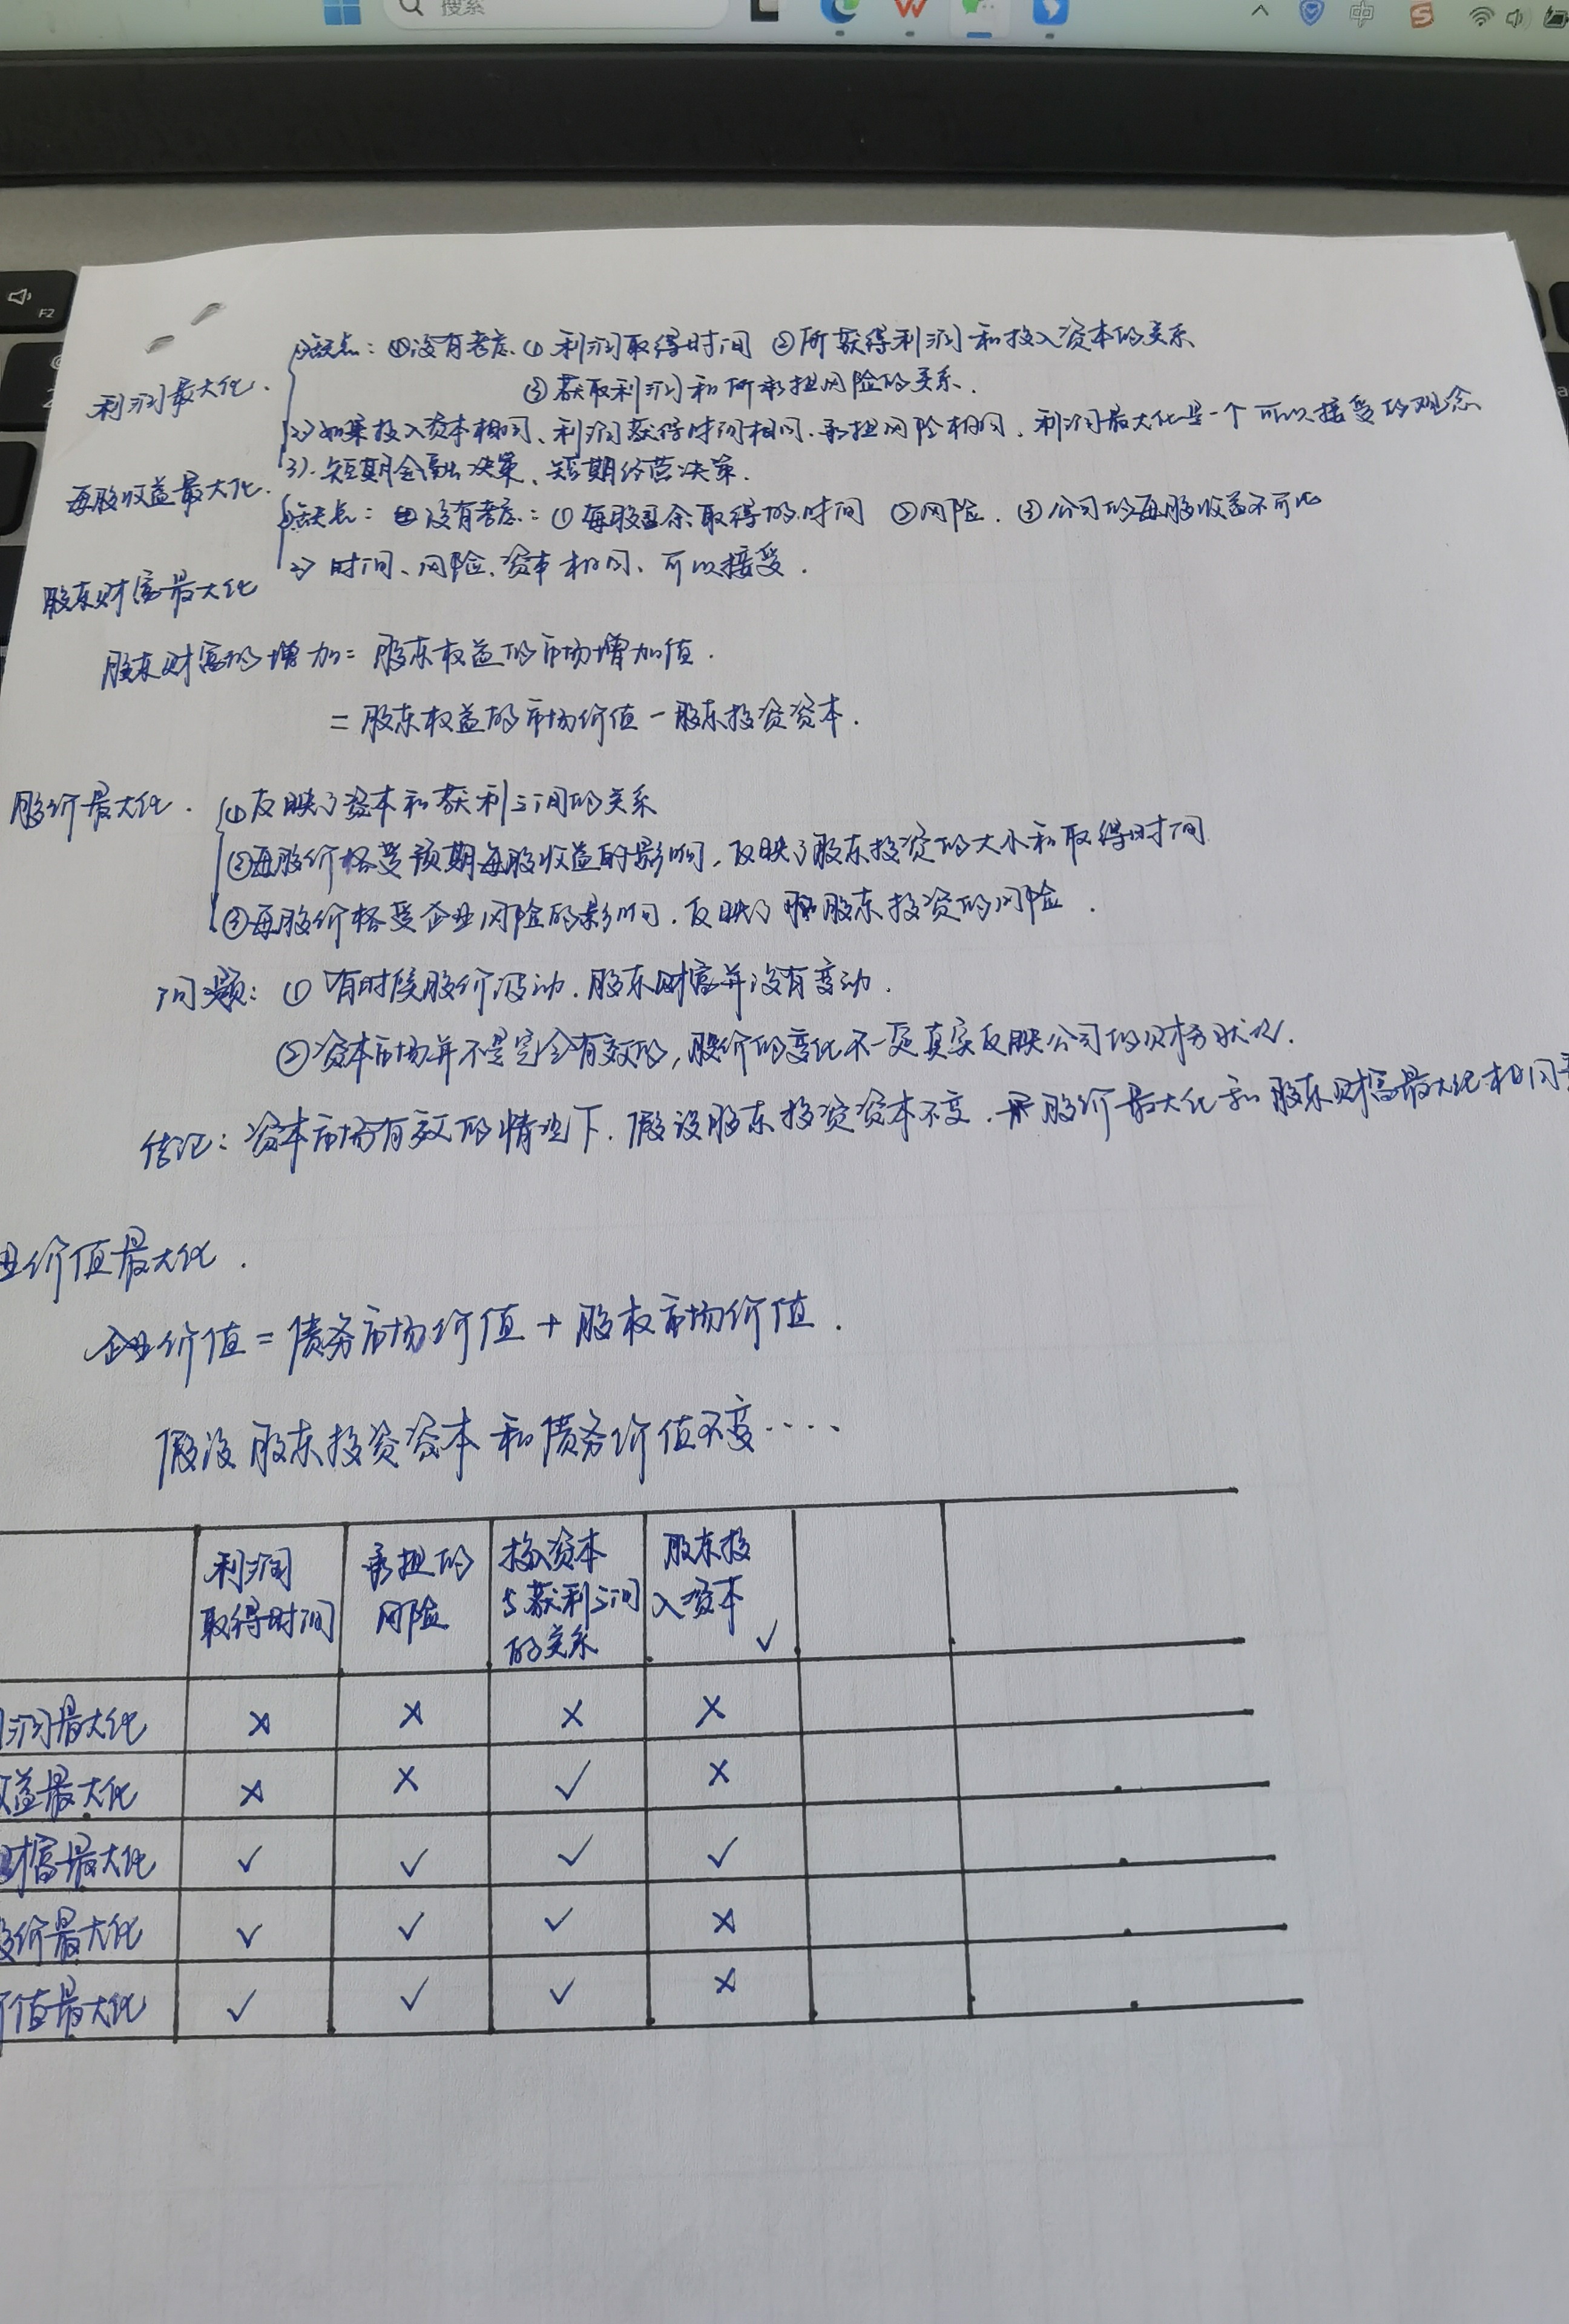 搜索
中
F2
1)缺点：没有考虑 ① 利润取得时间 ②所获得利润和投入资本的关系
③获取利润和所承担风险的关系.
利润最大化.
2)如果投入资本相同、利润获得时间相同、承担风险相同、利润最大化是一个可以接受的观念
3).短期金融决策、短期经营决策.
每股收益最大化.
1)缺点：没有考虑：① 每股盈余取得的时间 ②风险. ③公司的每股收益不可比
2) 时间、风险、资本相同、可以接受.
股东财富最大化
股东财富的增加= 股东权益的市场增加值.
= 股东权益的市场价值-股东投资资本.
股价最大化.
①反映了资本和获利之间的关系
②每股价格受预期每股收益的影响,反映了股东投资的大小和取得时间
③每股价格受企业风险的影响.反映了股东投资的风险.
问题：① 有时候股价波动.股东财富并没有变动.
②资本市场并不是完全有效的,股价的变化不一定真实反映公司的财务状况.
结论：资本市场有效的情况下.假设股东投资资本不变.股价最大化和股东财富最大化相同
业价值最大化.
企业价值=债务市场价值+股权市场价值.
假设股东投资资本和债务价值不变....
利润取得时间 承担的风险 投入资本与获利之间的关系 股东投入资本 ✓
润最大化 × × × ×
收益最大化 × × ✓ ×
财富最大化 ✓ ✓ ✓ ✓
股价最大化 ✓ ✓ ✓ ×
价值最大化 ✓ ✓ ✓ ×